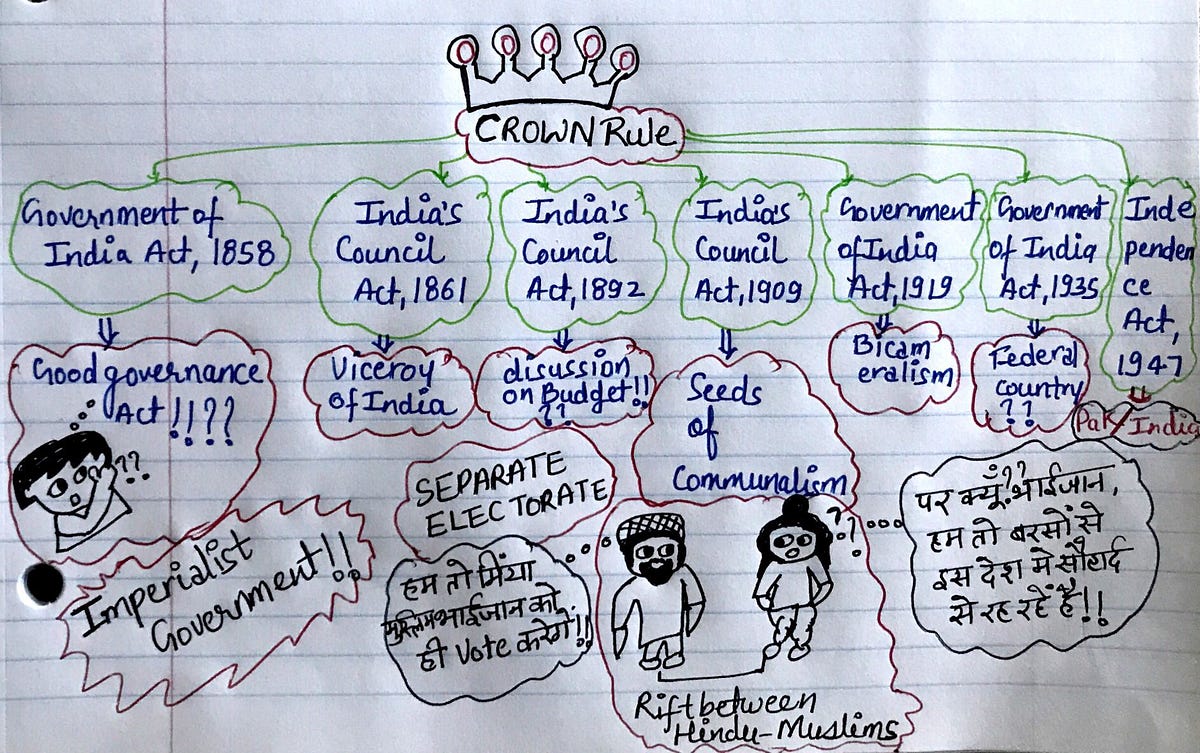 CROWN Rule
Government of
India Act, 1858
India's
Council
Act, 1861
India's
Council
Act, 1892
India's
Council
Act, 1909
Government
of India
Act, 1919
Government
of India
Act, 1935
Inde
penden
ce
Act,
1947
Good governance
Act !!??
??
Viceroy
of India
disussion
on Budget!!
??
Seeds
of
Communalism
Bicam
eralism
Federal
country
??
Pak/India
Imperialist
Government!!
SEPARATE
ELECTORATE
हम तो मिंया
मुस्लिम भाईजान को
ही Vote करेगें!!
??
!
पर क्यूँ?? भाईजान,
हम तो बरसों से
इस देश मे सौहार्द
से रह रहें है!!
Rift between
Hindu-Muslims